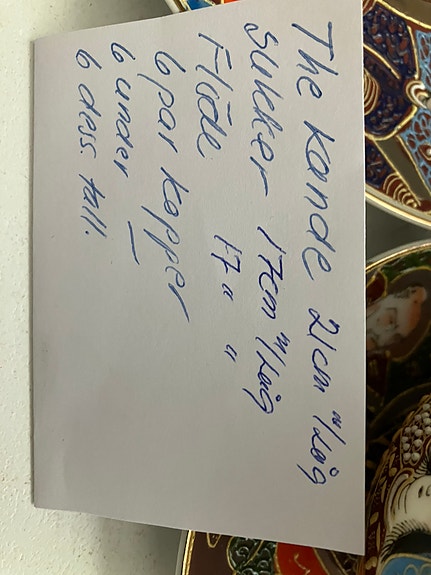 The Kande 21cm m/Låg
Sukker 17cm m/Låg
Fløde 17 " "
6 par kopper
6 under —
6 dess. tall.